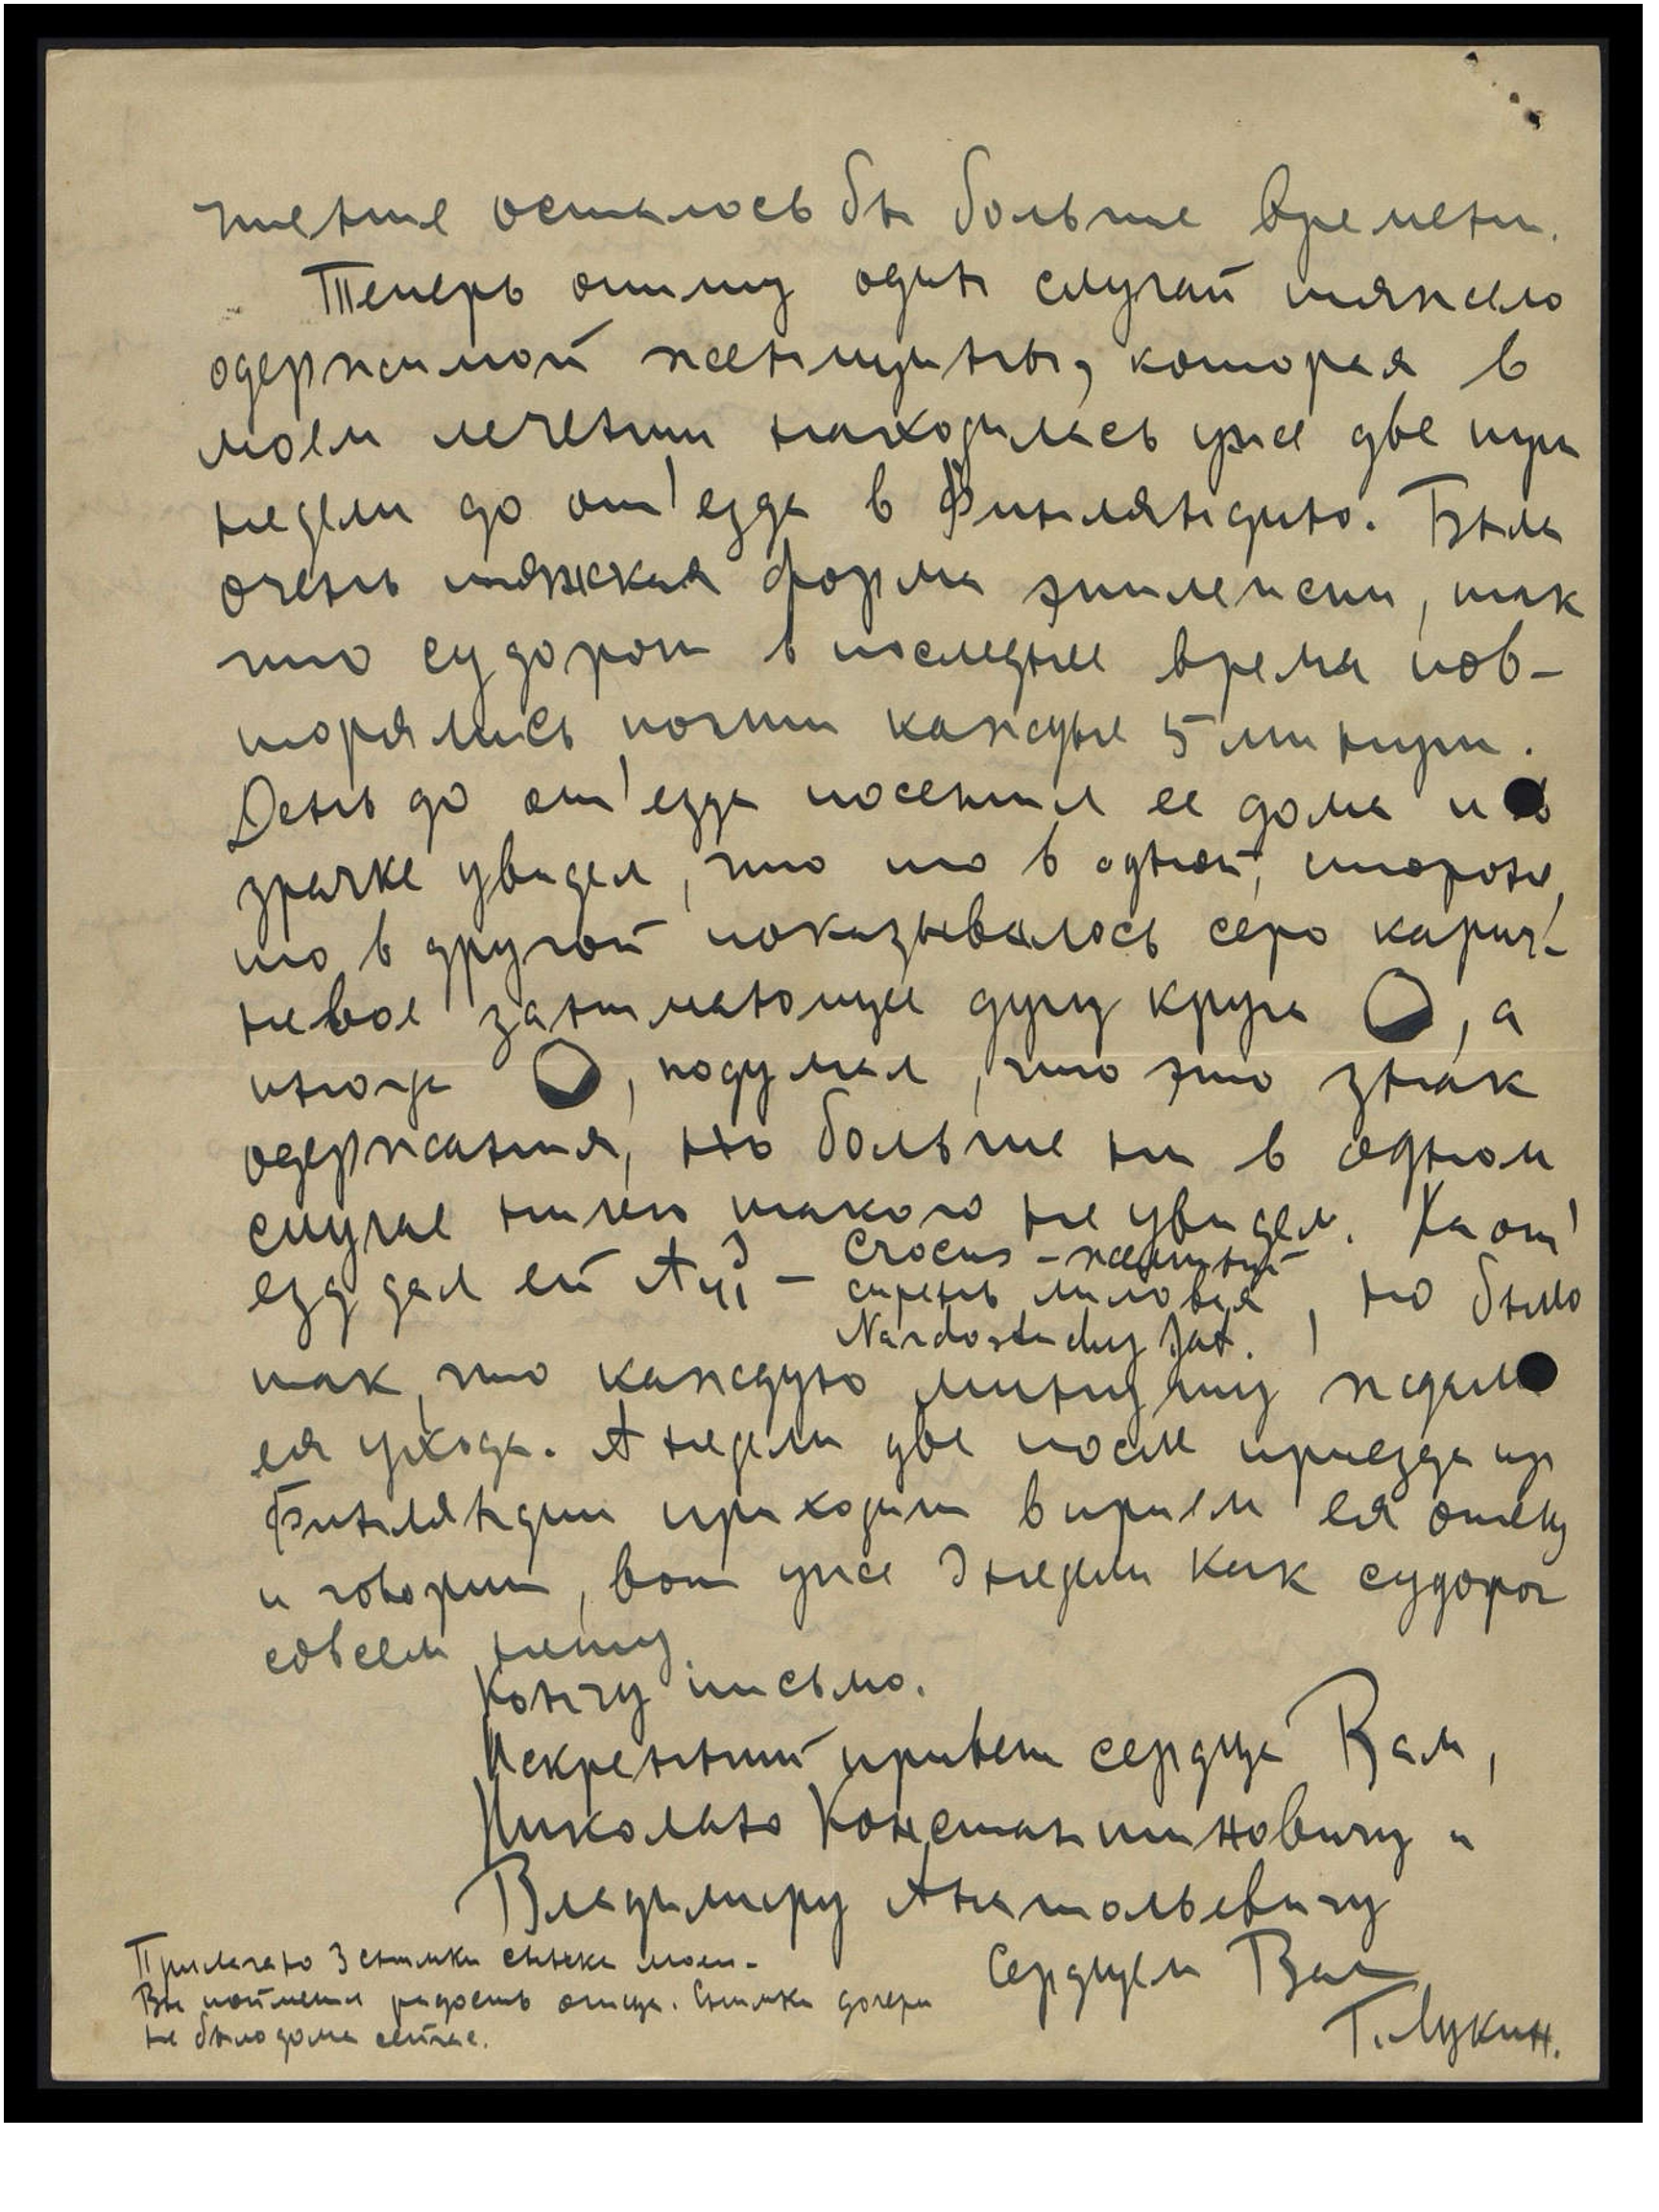 чтение осталось бы больше времени.
Теперь опишу один случай тяжело
одержимой женщины, которая в
моем лечении находилась уже две три
недели до от'езда в Финляндию. Была
очень тяжкая форма эпилепсии, так
что судороги в последнее время пов-
торялись почти каждые 5 минути.
День до от'езда посетил ее дома и в
зрачке увидел, что то в одной, стороне,
то в другой показывалось серо карич-
невое занимающее дугу круга , а
иногда , подумал, что это знак
одержания, но больше ни в одном
случае ничего такого не увидел. На от'
езд дал ей
Crocus - желтый
сирень лиловая , но было
Nardostachys Jat.
так, что каждую минуту ждали
ея ухода. А недели две после приезда из
Финляндии приходит в прием ея отец
и говорит, вот уже 3 недели как судорог
совсем нету.
Кончу письмо.
Искренний привет сердца Вам,
Николаю Константиновичу и
Владимиру Анатольевичу
Сердцем Ваш
Г. Лукин.
Прилагаю 3 снимки сынска моего-
Вы поймете радость отца. Снимки дочери
не было дома сейчас.